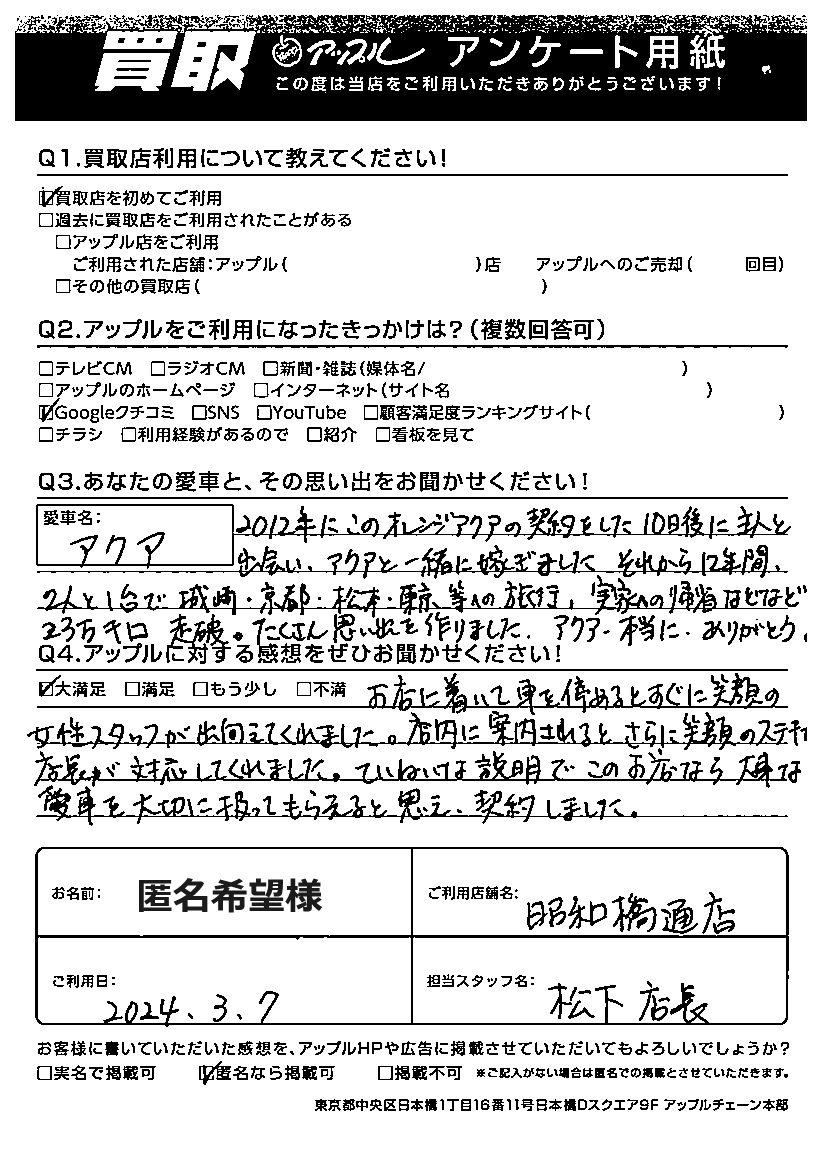 買取 アップル アンケート用紙
この度は当店をご利用いただきありがとうございます!
Q1.買取店利用について教えてください!
☑買取店を初めてご利用
□過去に買取店をご利用されたことがある
□アップル店をご利用
ご利用された店舗:アップル( )店 アップルへのご売却( 回目)
□その他の買取店( )
Q2.アップルをご利用になったきっかけは?(複数回答可)
□テレビCM □ラジオCM □新聞・雑誌(媒体名/ )
□アップルのホームページ □インターネット(サイト名 )
☑Googleクチコミ □SNS □YouTube □顧客満足度ランキングサイト( )
□チラシ □利用経験があるので □紹介 □看板を見て
Q3.あなたの愛車と、その思い出をお聞かせください!
愛車名: アクア
2012年にこのオレンジアクアの契約をした10日後に主人と
出会い、アクアと一緒に嫁ぎました それから12年間、
2人と1台で 城崎・京都・松本・東京、等への旅行、実家への帰省などなど
23万キロ 走破。たくさん思い出を作りました。アクア、本当に、ありがとう。
Q4.アップルに対する感想をぜひお聞かせください!
☑大満足 □満足 □もう少し □不満 お店に着いて車を停めるとすぐに笑顔の
女性スタッフが出迎えてくれました。店内に案内されるとさらに笑顔のステキな
店長が対応してくれました。ていねいな説明でこのお店なら大事な
愛車を大切に扱ってもらえると思え、契約しました。
お名前: 匿名希望様
ご利用店舗名: 昭和橋通店
ご利用日: 2024.3.7
担当スタッフ名: 松下 店長
お客様に書いていただいた感想を、アップルHPや広告に掲載させていただいてもよろしいでしょうか?
□実名で掲載可 ☑匿名なら掲載可 □掲載不可 ※ご記入がない場合は匿名での掲載とさせていただきます。
東京都中央区日本橋1丁目16番11号日本橋Dスクエア9F アップルチェーン本部